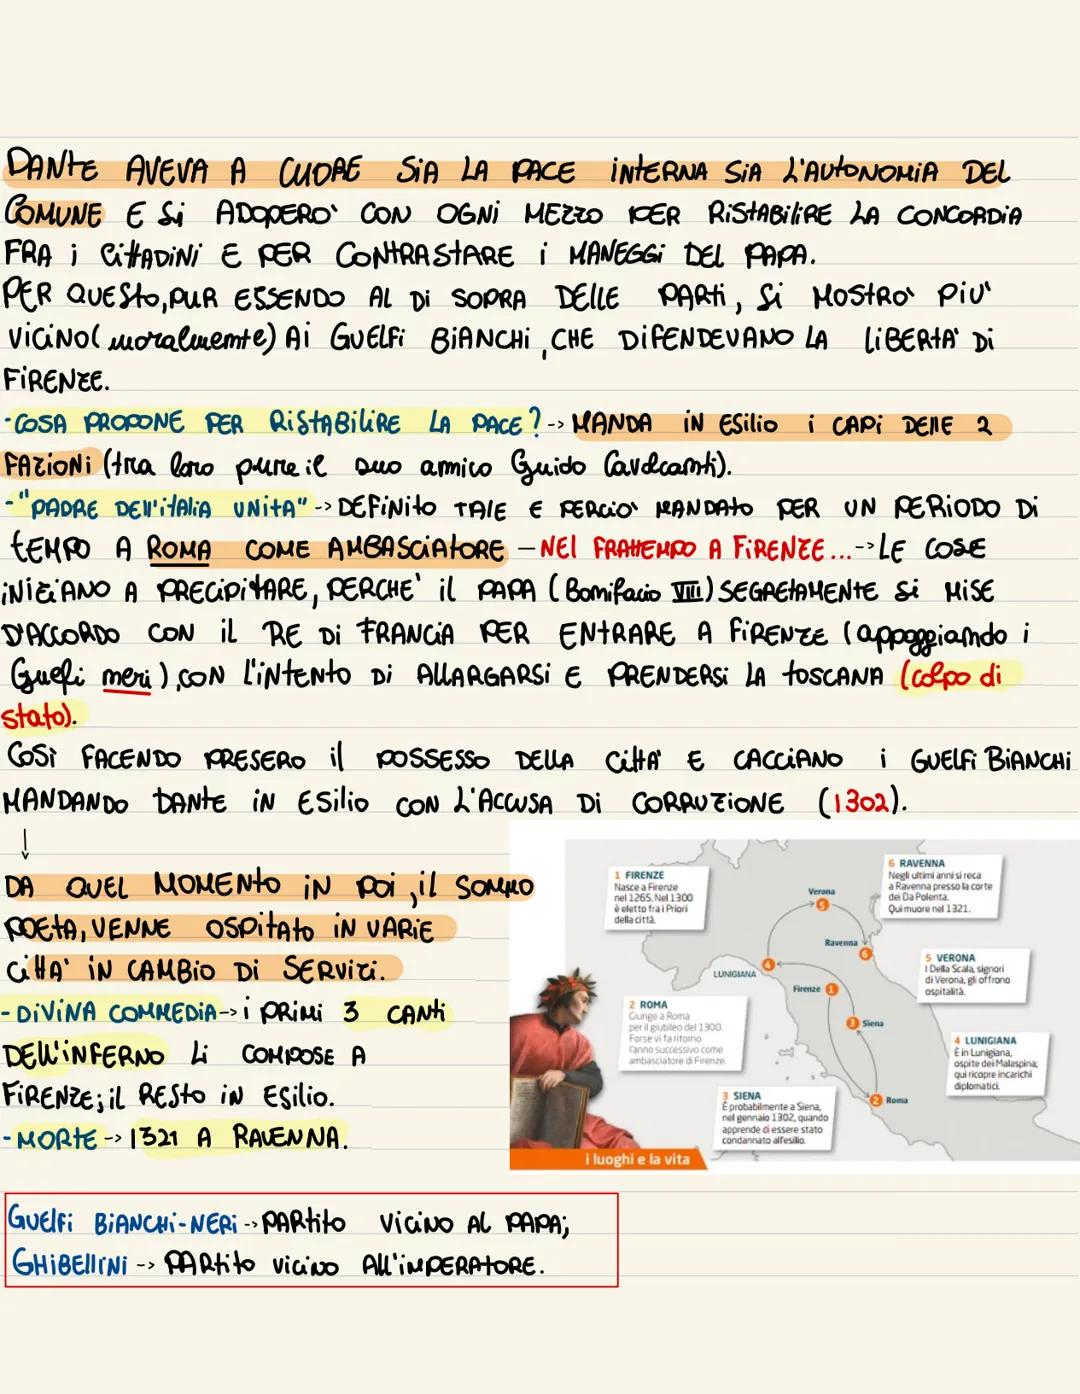 DANTE AVEVA A CUORE SIA LA PACE INTERNA SIA L'AUTONOMIA DEL
COMUNE E SI ADOPERO' CON OGNI MEZZO PER RISTABILIRE LA CONCORDIA
FRA I CITTADINI E PER CONTRASTARE I MANEGGI DEL PAPA.
PER QUESTO, PUR ESSENDO AL DI SOPRA DELLE PARTI, SI MOSTRO' PIU'
VICINO (moralmente) AI GUELFI BIANCHI, CHE DIFENDEVANO LA LIBERTA' DI
FIRENZE.
-COSA PROPONE PER RISTABILIRE LA PACE? -> MANDA IN ESILIO I CAPI DELLE 2
FAZIONI (tra loro pure il suo amico Guido Cavalcanti).
-"PADRE DELL'ITALIA UNITA" -> DEFINITO TALE E PERCIO' MANDATO PER UN PERIODO DI
TEMPO A ROMA COME AMBASCIATORE - NEL FRATTEMPO A FIRENZE... -> LE COSE
INIZIANO A PRECIPITARE, PERCHE' IL PAPA (Bonifacio VIII) SEGRETAMENTE SI MISE
D'ACCORDO CON IL RE DI FRANCIA PER ENTRARE A FIRENZE (appoggiando i
Guelfi neri), CON L'INTENTO DI ALLARGARSI E PRENDERSI LA TOSCANA (colpo di
stato).
COSÌ FACENDO PRESERO IL POSSESSO DELLA CITTA' E CACCIANO I GUELFI BIANCHI
MANDANDO DANTE IN ESILIO CON L'ACCUSA DI CORRUZIONE (1302).
↓
DA QUEL MOMENTO IN POI, IL SOMMO
POETA, VENNE OSPITATO IN VARIE
CITTA' IN CAMBIO DI SERVIZI.
- DIVINA COMMEDIA -> I PRIMI 3 CANTI
DELL'INFERNO LI COMPOSE A
FIRENZE; IL RESTO IN ESILIO.
- MORTE -> 1321 A RAVENNA.
1 FIRENZE
Nasce a Firenze
nel 1265. Nel 1300
è eletto fra i Priori
della città.
6 RAVENNA
Negli ultimi anni si reca
a Ravenna presso la corte
dei Da Polenta.
Qui muore nel 1321.
Verona
5
Ravenna
6
5 VERONA
I Della Scala, signori
di Verona, gli offrono
ospitalità.
LUNIGIANA
4
Firenze 1
2 ROMA
Giunge a Roma
per il giubileo del 1300.
Forse vi fa ritorno
l'anno successivo come
ambasciatore di Firenze.
3 Siena
4 LUNIGIANA
È in Lunigiana,
ospite dei Malaspina;
qui ricopre incarichi
diplomatici.
3 SIENA
È probabilmente a Siena,
nel gennaio 1302, quando
apprende di essere stato
condannato all'esilio.
2 Roma
i luoghi e la vita
GUELFI BIANCHI-NERI -> PARTITO VICINO AL PAPA;
GHIBELLINI -> PARTITO VICINO ALL'IMPERATORE.